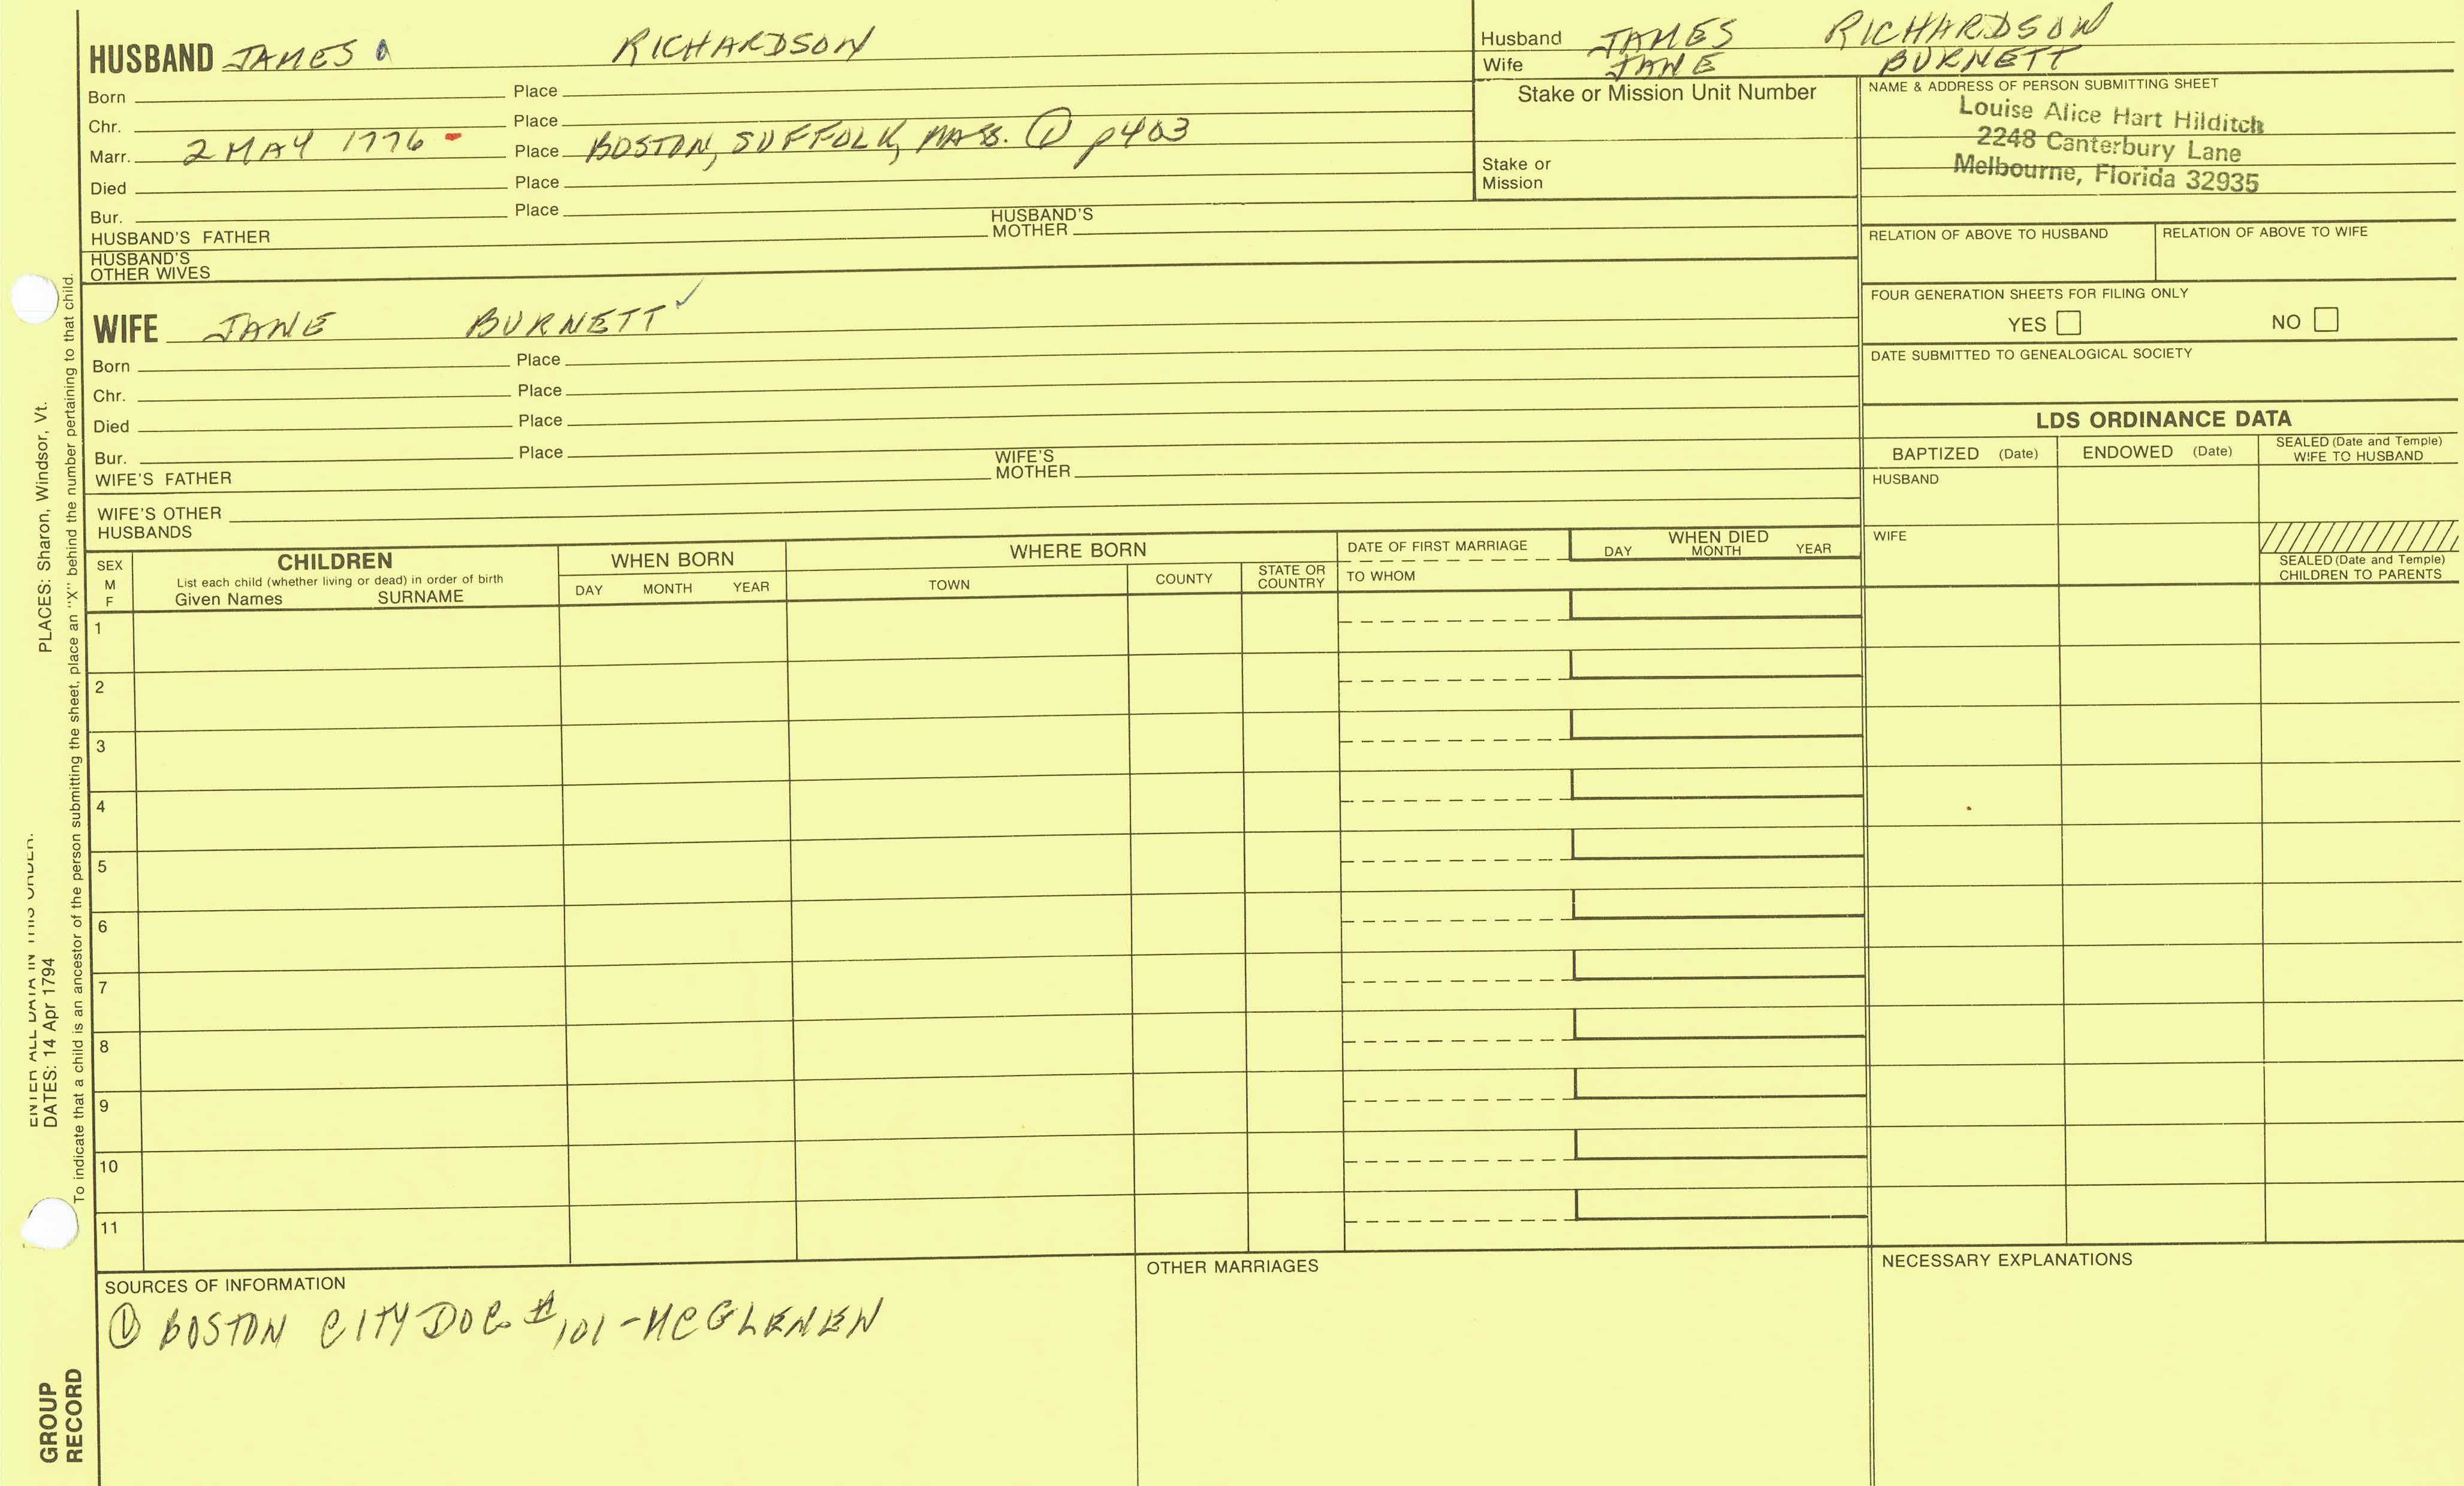 HUSBAND JAMES RICHARDSON
Born Place
Chr. Place
Marr. 2 MAY 1776 - Place BOSTON, SUFFOLK, MASS. ① p403
Died Place
Bur. Place
HUSBAND'S FATHER HUSBAND'S MOTHER
HUSBAND'S OTHER WIVES
Husband JAMES RICHARDSON
Wife JANE BURNETT
Stake or Mission Unit Number
Stake or
Mission
NAME & ADDRESS OF PERSON SUBMITTING SHEET
Louise Alice Hart Hilditch
2248 Canterbury Lane
Melbourne, Florida 32935
RELATION OF ABOVE TO HUSBAND RELATION OF ABOVE TO WIFE
FOUR GENERATION SHEETS FOR FILING ONLY
YES NO
DATE SUBMITTED TO GENEALOGICAL SOCIETY
WIFE JANE BURNETT ✓
Born Place
Chr. Place
Died Place
Bur. Place
WIFE'S FATHER WIFE'S MOTHER
WIFE'S OTHER
HUSBANDS
LDS ORDINANCE DATA
BAPTIZED (Date) ENDOWED (Date) SEALED (Date and Temple) WIFE TO HUSBAND
HUSBAND
WIFE
SEALED (Date and Temple)
CHILDREN TO PARENTS
SEX
M
F
CHILDREN
List each child (whether living or dead) in order of birth
Given Names SURNAME
WHEN BORN
DAY MONTH YEAR
WHERE BORN
TOWN COUNTY STATE OR COUNTRY
DATE OF FIRST MARRIAGE
TO WHOM
WHEN DIED
DAY MONTH YEAR
1
2
3
4
5
6
7
8
9
10
11
SOURCES OF INFORMATION
① BOSTON CITY DOC. #101 - MCGLENEN
OTHER MARRIAGES
NECESSARY EXPLANATIONS
ENTER ALL DATA IN THIS ORDER:
DATES: 14 Apr 1794 PLACES: Sharon, Windsor, Vt.
To indicate that a child is an ancestor of the person submitting the sheet, place an "X" behind the number pertaining to that child.
GROUP
RECORD